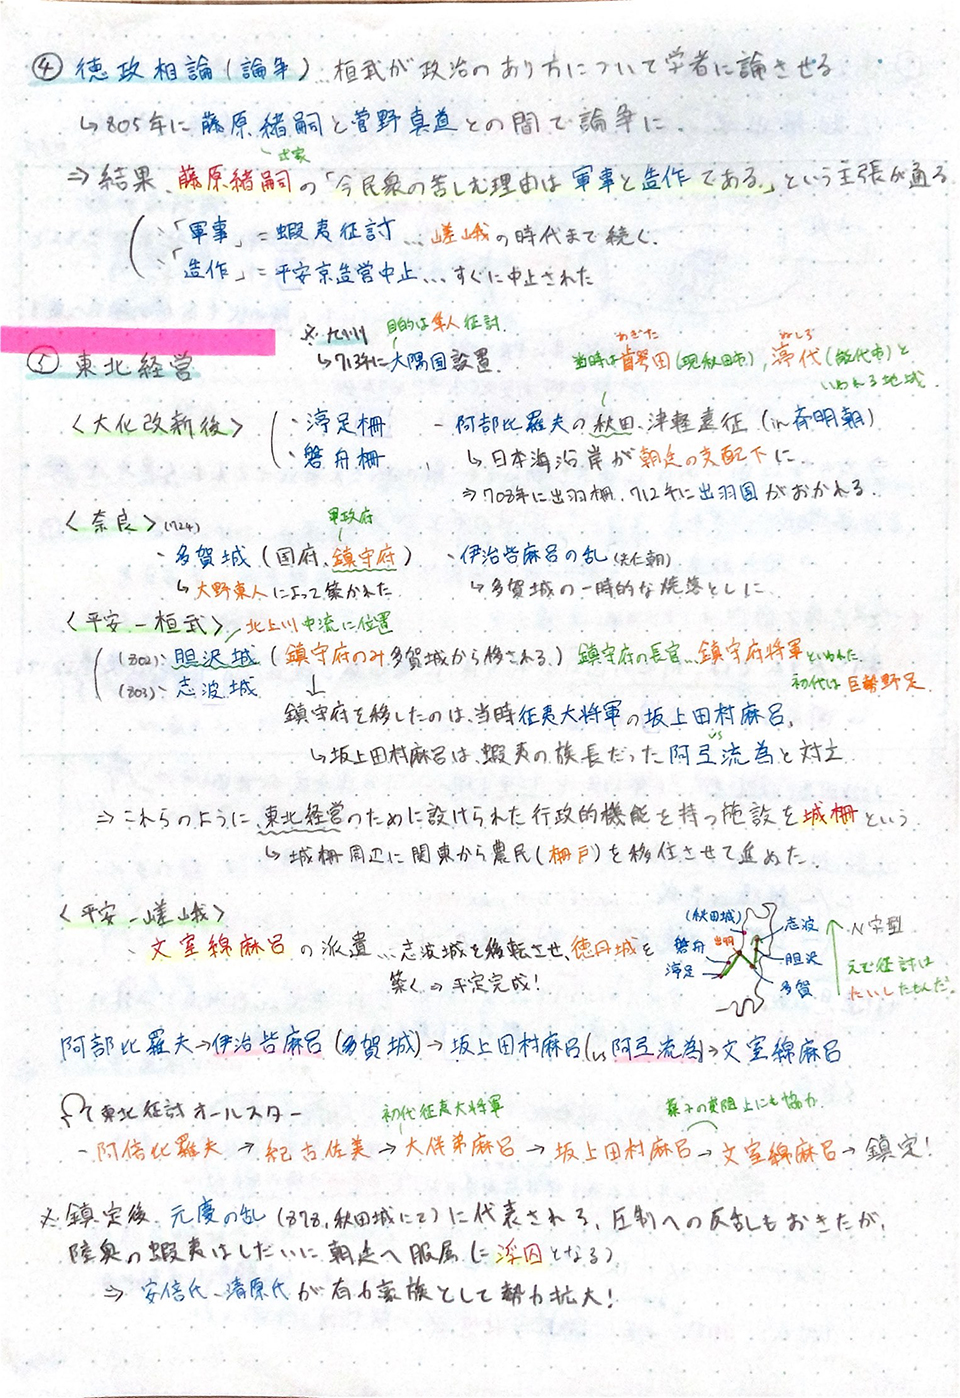 ④ 徳政相論(論争)…桓武が政治のあり方について学者に論させる
↳805年に藤原緒嗣と菅野真道との間で論争に.
式家
⇒結果、藤原緒嗣の「今民衆の苦しむ理由は軍事と造作である。」という主張が通る
・「軍事」=蝦夷征討…嵯峨の時代まで続く.
・「造作」=平安京造営中止…すぐに中止された
※九州 目的は隼人征討.
↳713年に大隅国設置.
あぎた ぬしろ
当時は齶田(現秋田市),渟代(能代市)と
いわれる地域.
⑤ 東北経営
<大化改新後> ・渟足柵 - 阿部比羅夫の秋田、津軽遠征(in斉明朝)
・磐舟柵 ↳日本海沿岸が朝廷の支配下に
⇒708年に出羽柵.712年に出羽国がおかれる.
<奈良>(724) 軍政府
・多賀城(国府、鎮守府) ・伊治呰麻呂の乱(光仁朝)
↳大野東人によって築かれた. ↳多賀城の一時的な焼落としに
<平安-桓武> 北上川中流に位置
(802)・胆沢城(鎮守府のみ多賀城から移される.) 鎮守府の長官…鎮守府将軍といわれた.
(803)・志波城 初代は巨勢野足
↓
鎮守府を移したのは、当時征夷大将軍の坂上田村麻呂.
vs
↳坂上田村麻呂は、蝦夷の族長だった阿弖流為と対立
⇒これらのように、東北経営のために設けられた行政的機能を持つ施設を城柵という.
↳城柵周辺に関東から農民(柵戸)を移住させて進めた.
<平安-嵯峨>
・文室綿麻呂の派遣…志波城を移転させ、徳丹城を
築く⇒平定完成!
(秋田城) 志波
磐舟 出羽 胆沢
渟足 多賀
N字型
阿部比羅夫→伊治呰麻呂(多賀城)→坂上田村麻呂(vs阿弖流為)→文室綿麻呂
東北征討オールスター 初代征夷大将軍 薬子の変阻止にも協力
-阿倍比羅夫→紀古佐美→大伴弟麻呂→坂上田村麻呂→文室綿麻呂→鎮定!
※鎮定後、元慶の乱(878,秋田城にて)に代表される、圧制への反乱もおきたが、
陸奥の蝦夷はしだいに朝廷へ服属(に浮囚となる)
⇒安倍氏、清原氏が有力豪族として勢力拡大!